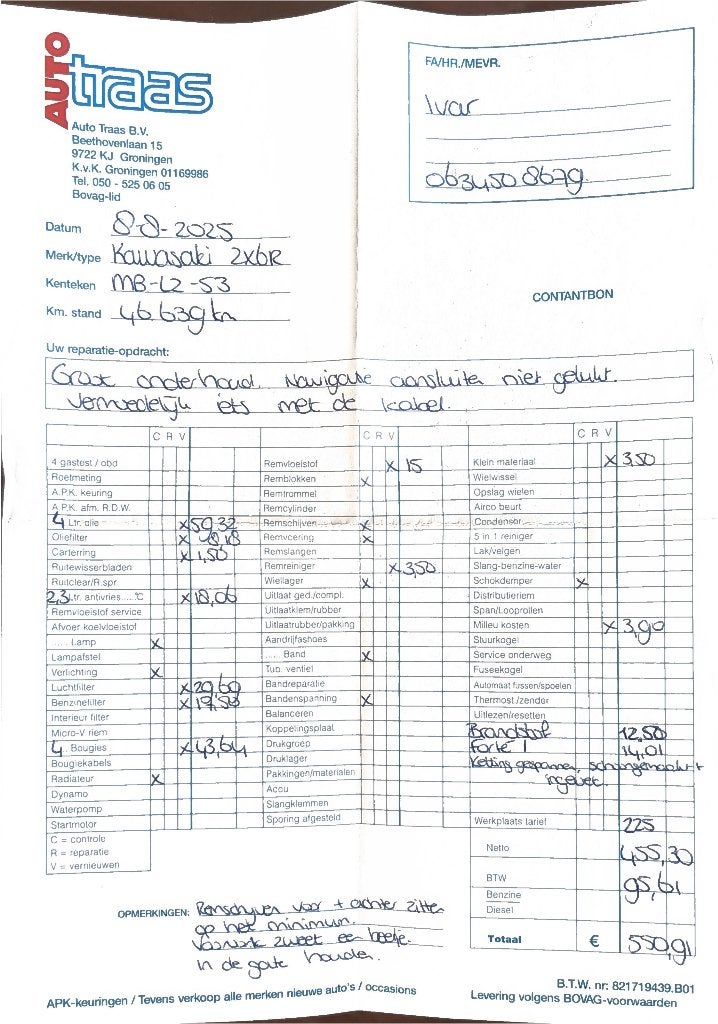 AUTO traas
Auto Traas B.V.
Beethovenlaan 15
9722 KJ Groningen
K.v.K. Groningen 01169986
Tel. 050 - 525 06 05
Bovag-lid
FA/HR./MEVR.
Ivar
0634508679
Datum 8-8-2025
Merk/type Kawasaki ZX6R
Kenteken MB-LZ-53
Km. stand 46.639 km
CONTANTBON
Uw reparatie-opdracht:
Groot onderhoud. Navigatie aansluiten niet gelukt.
Vermoedelijk iets met de kabel.
C R V
4 gastest / obd
Roetmeting
A.P.K. keuring
A.P.K. afm. R.D.W.
4 Ltr. olie x 59,32
Oliefilter x 18,18
Carterring x 1,50
Ruitewisserbladen
Ruitclear/R.spr
2,3 Ltr. antivries.....°C x 18,06
Remvloeistof service
Afvoer koelvloeistof
..... Lamp x
Lampafstel
Verlichting x
Luchtfilter x 29,69
Benzinefilter x
Interieur filter
Micro-V riem
4 Bougies x 43,64
Bougiekabels
Radiateur x
Dynamo
Waterpomp
Startmotor
C = controle
R = reparatie
V = vernieuwen
C R V
Remvloeistof x 15
Remblokken x
Remtrommel
Remcylinder
Remschijven x
Remvoering x
Remslangen
Remreiniger x 3,50
Wiellager x
Uitlaat ged./compl.
Uitlaatklem/rubber
Uitlaatrubber/pakking
Aandrijfashoes
..... Band x
Tub. ventiel
Bandreparatie
Bandenspanning x
Balanceren
Koppelingsplaat
Drukgroep
Druklager
Pakkingen/materialen
Accu
Slangklemmen
Sporing afgesteld
C R V
Klein materiaal x 3,50
Wielwissel
Opslag wielen
Airco beurt
Condensor
5 in 1 reiniger
Lak/velgen
Slang-benzine-water
Schokdemper x
Distributieriem
Span/Looprollen
Milieu kosten x 3,90
Stuurkogel
Service onderweg
Fuseekogel
Automaat fussen/spoelen
Thermost./zender
Uitlezen/resetten
Brandstof 12,50
Forté 1 14,01
Ketting gespannen, schoongemaakt +
ingevet.
Werkplaats tarief 225
Netto 455,30
BTW 95,61
Benzine
Diesel
Totaal € 550,91
OPMERKINGEN: Remschijven voor + achter zitten
op het minimum.
Voorvork zweet een beetje.
In de gate houden.
APK-keuringen / Tevens verkoop alle merken nieuwe auto's / occasions
B.T.W. nr: 821719439.B01
Levering volgens BOVAG-voorwaarden